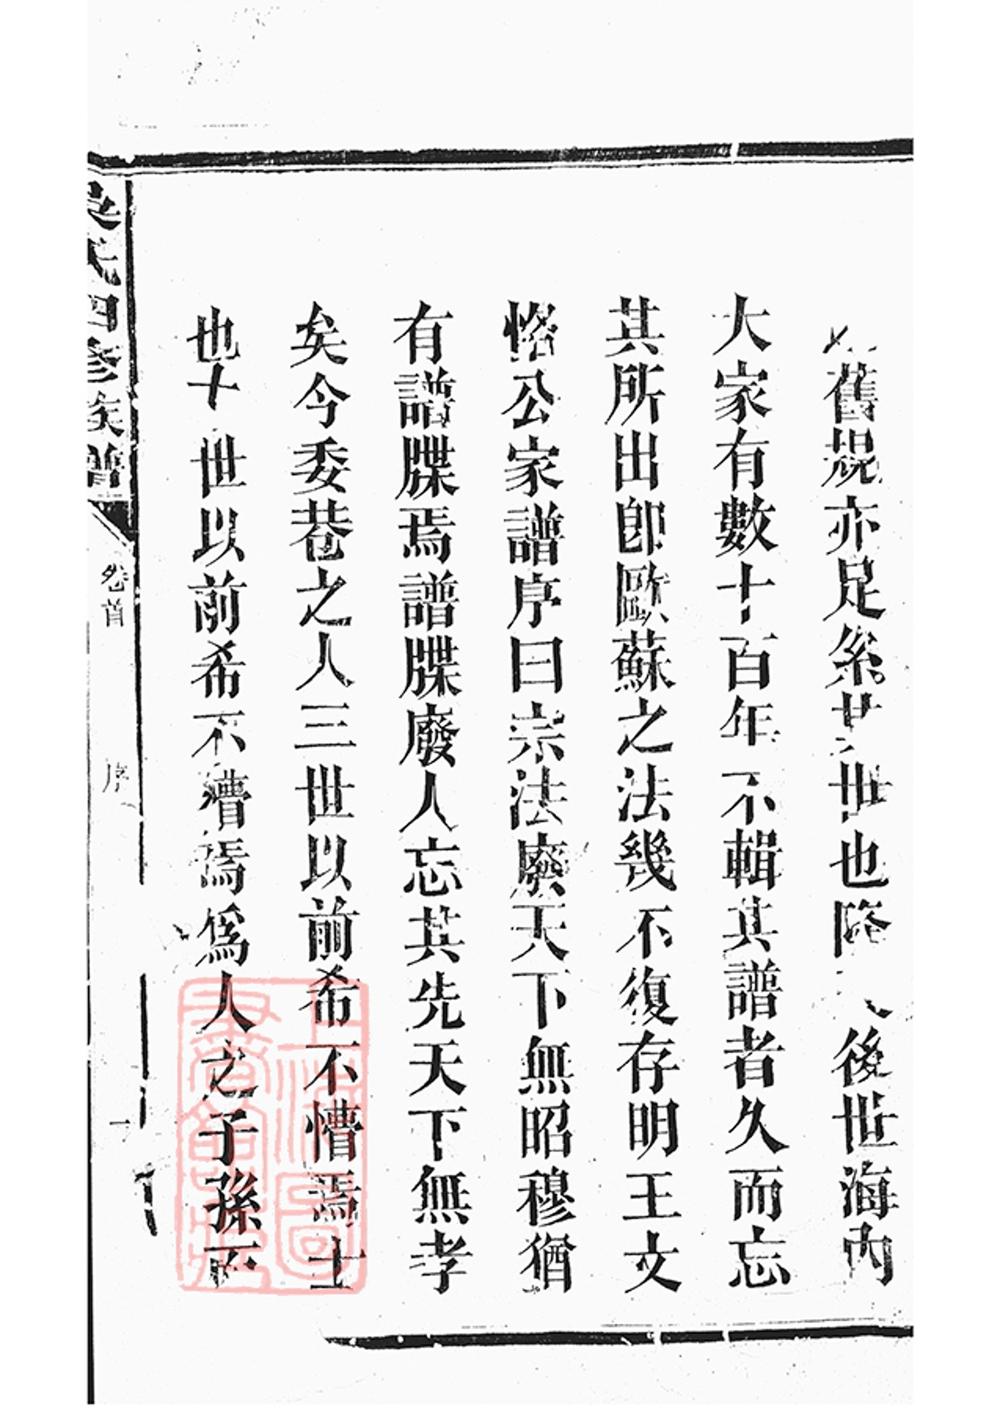 舊規亦足系世也降後世海內
大家有數十百年不輯其譜者久而忘
其所出即歐蘇之法幾不復存明王文
恪公家譜序曰宗法廢天下無昭穆猶
有譜牒焉譜牒廢人忘其先天下無孝
矣今委巷之人三世以前希不懵焉士
也十世以前希不懵焉爲人之子孫而
吳氏四修族譜
卷首
序
一